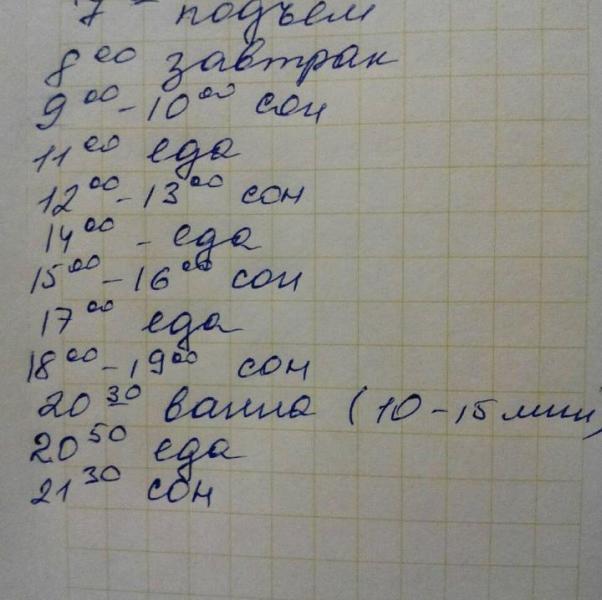 7 - подъем
8 00 завтрак
9 00 - 10 00 сон
11 00 еда
12 00 - 13 00 сон
14 00 - еда
15 00 - 16 00 сон
17 00 еда
18 00 - 19 00 сон
20 30 ванна (10 - 15 мин)
20 50 еда
21 30 сон